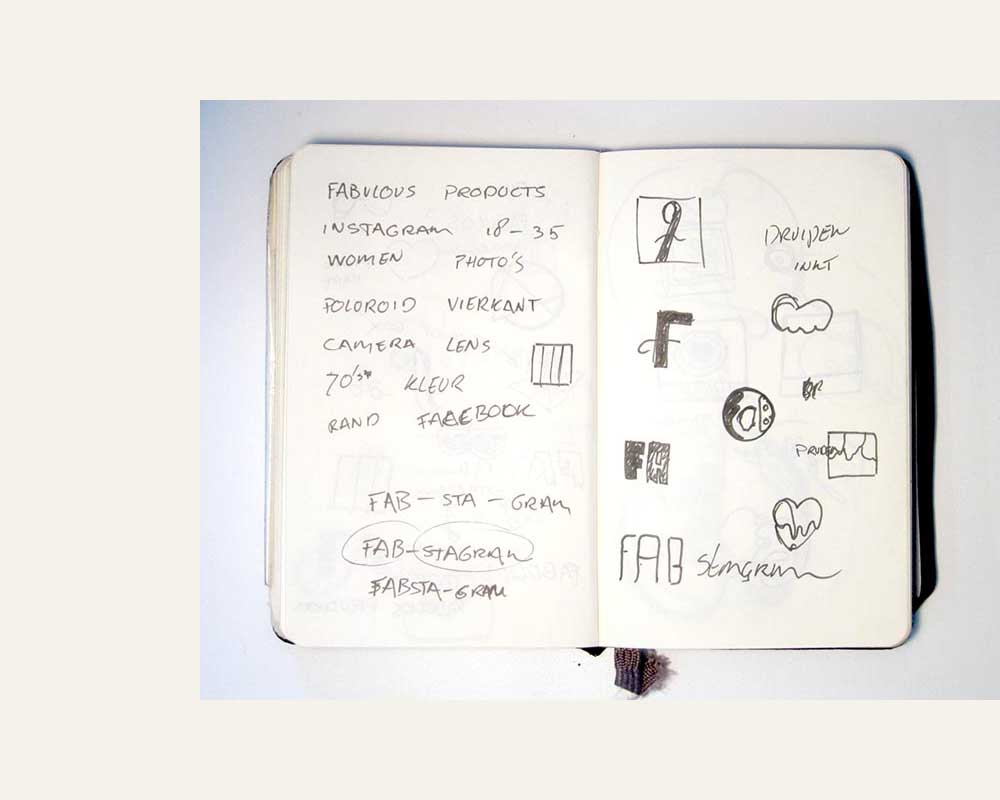 FABULOUS PRODUCTS
INSTAGRAM 18-35
WOMEN PHOTO'S
POLOROID VIERKANT
CAMERA LENS
70's KLEUR
RAND FACEBOOK
FAB-STA-GRAM
FAB-STAGRAM
FABSTA-GRAM
DRUIPEN
INKT
F
FA
FAB Stagram